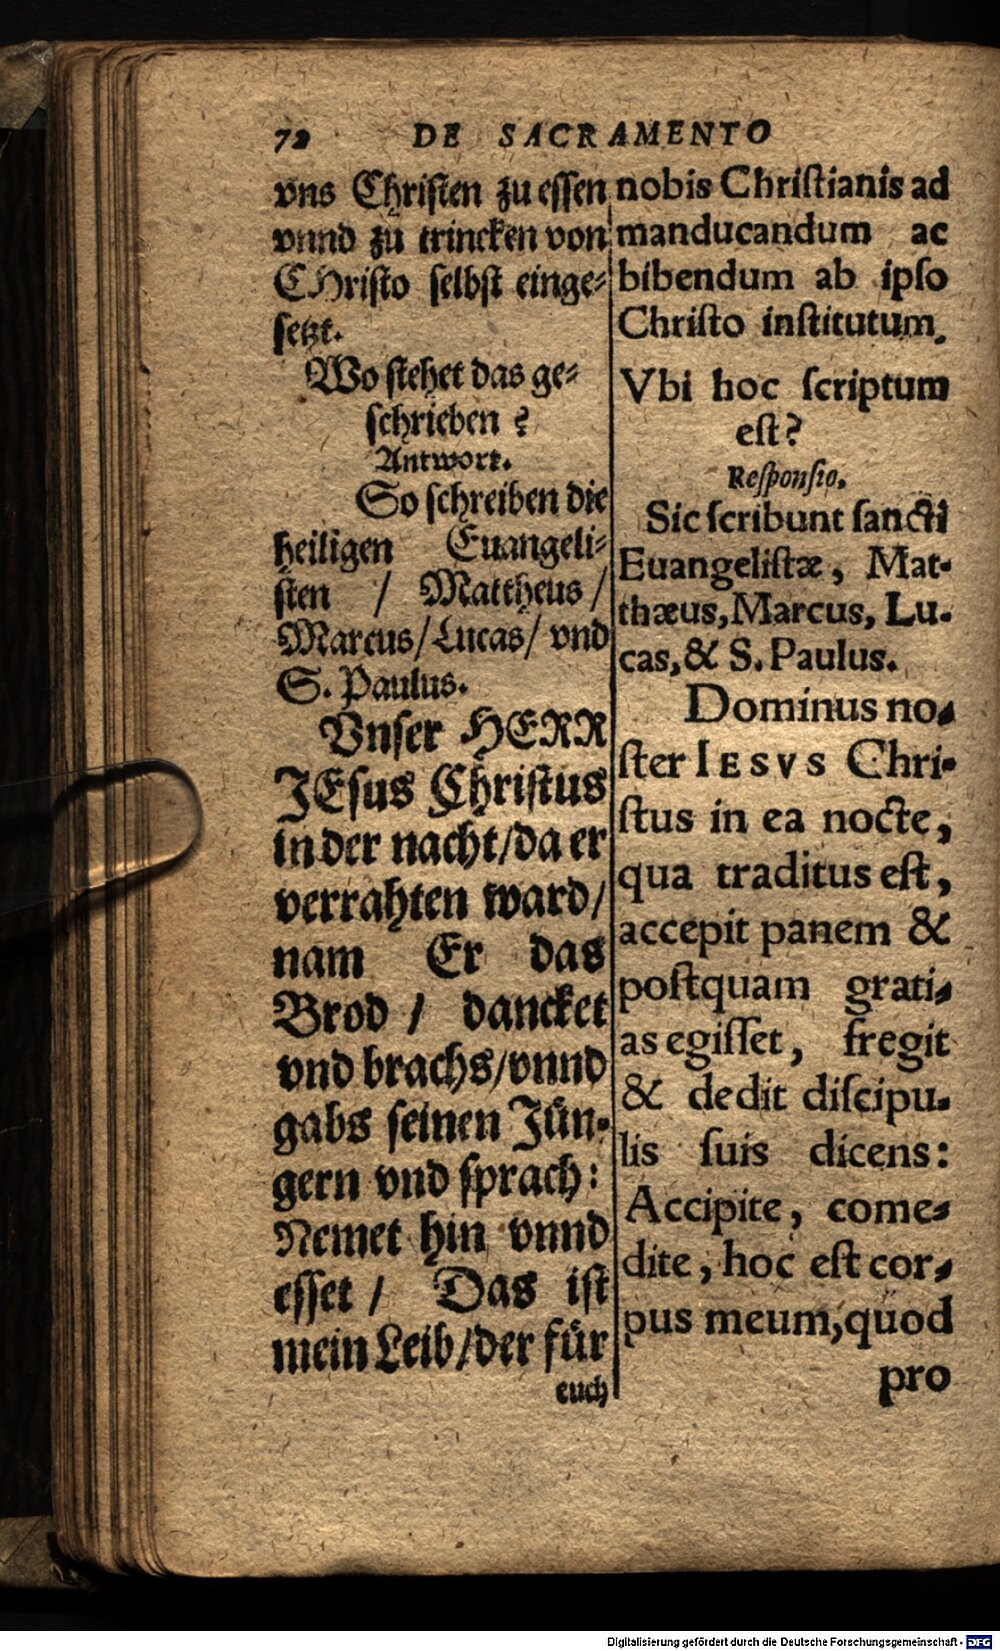 72 DE SACRAMENTO
vns Christen zu essen
vnnd zu trincken von
CHristo selbst einge⸗
setzt.
Wo stehet das ge⸗
schrieben ?
Antwort.
So schreiben die
heiligen Euangeli⸗
sten / Mattheus /
Marcus / Lucas / vnd
S. Paulus.
Vnser HERR
JEsus Christus
in der nacht / da er
verrahten ward /
nam Er das
Brod / dancket
vnd brachs / vnnd
gabs seinen Jün⸗
gern vnd sprach :
Nemet hin vnnd
esset / Das ist
mein Leib / der für
euch
nobis Christianis ad
manducandum ac
bibendum ab ipso
Christo institutum.
Vbi hoc scriptum
est?
Responsio.
Sic scribunt sancti
Euangelistæ, Mat-
thæus, Marcus, Lu-
cas, & S. Paulus.
Dominus no-
ster IESVS Chri-
stus in ea nocte,
qua traditus est,
accepit panem &
postquam grati-
as egisset, fregit
& dedit discipu-
lis suis dicens:
Accipite, come-
dite, hoc est cor-
pus meum, quod
pro
Digitalisierung gefördert durch die Deutsche Forschungsgemeinschaft - DFG